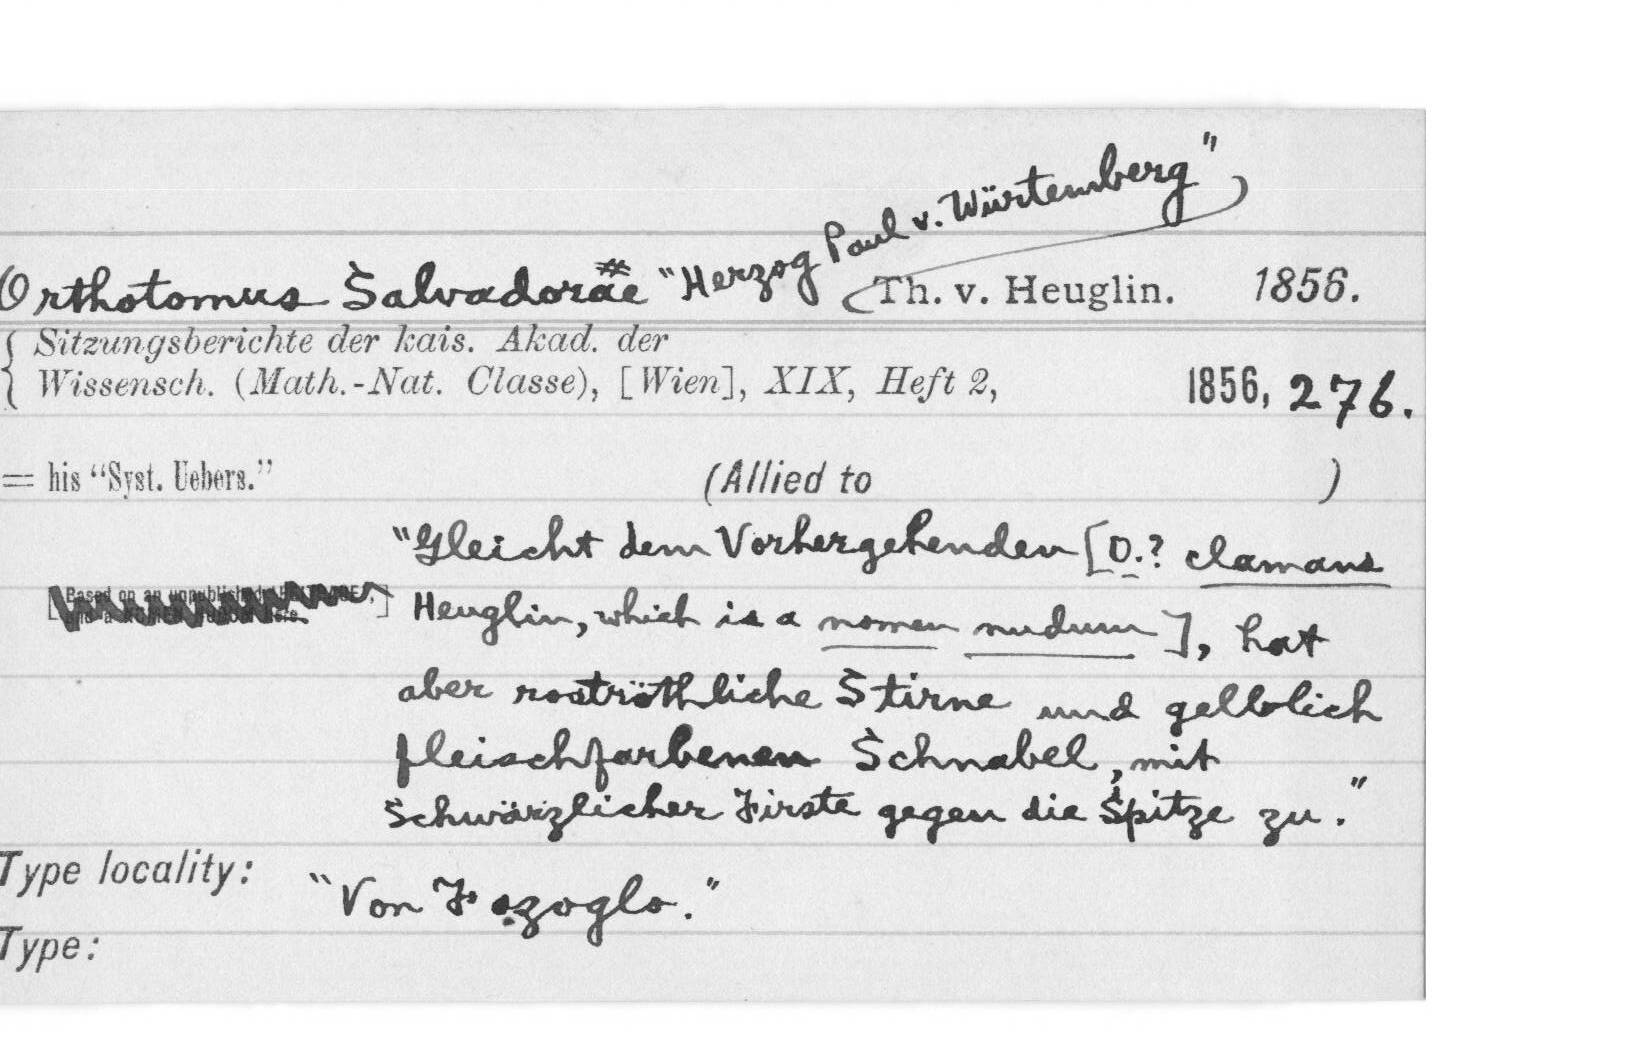 Orthotomus Salvadorae "Herzog Paul v. Würtemberg" (Th. v. Heuglin.) 1856.
{ Sitzungsberichte der kais. Akad. der
Wissensch. (Math.-Nat. Classe), [Wien], XIX, Heft 2, 1856, 276.
= his "Syst. Uebers." (Allied to )
"Gleicht dem Vorhergehenden [O.? clamans
Heuglin, which is a nomen nudum], hat
aber roströthliche Stirne und gelblich
fleischfarbenen Schnabel, mit
schwärzlicher Firste gegen die Spitze zu."
Type locality: "Von Fazoglo."
Type: